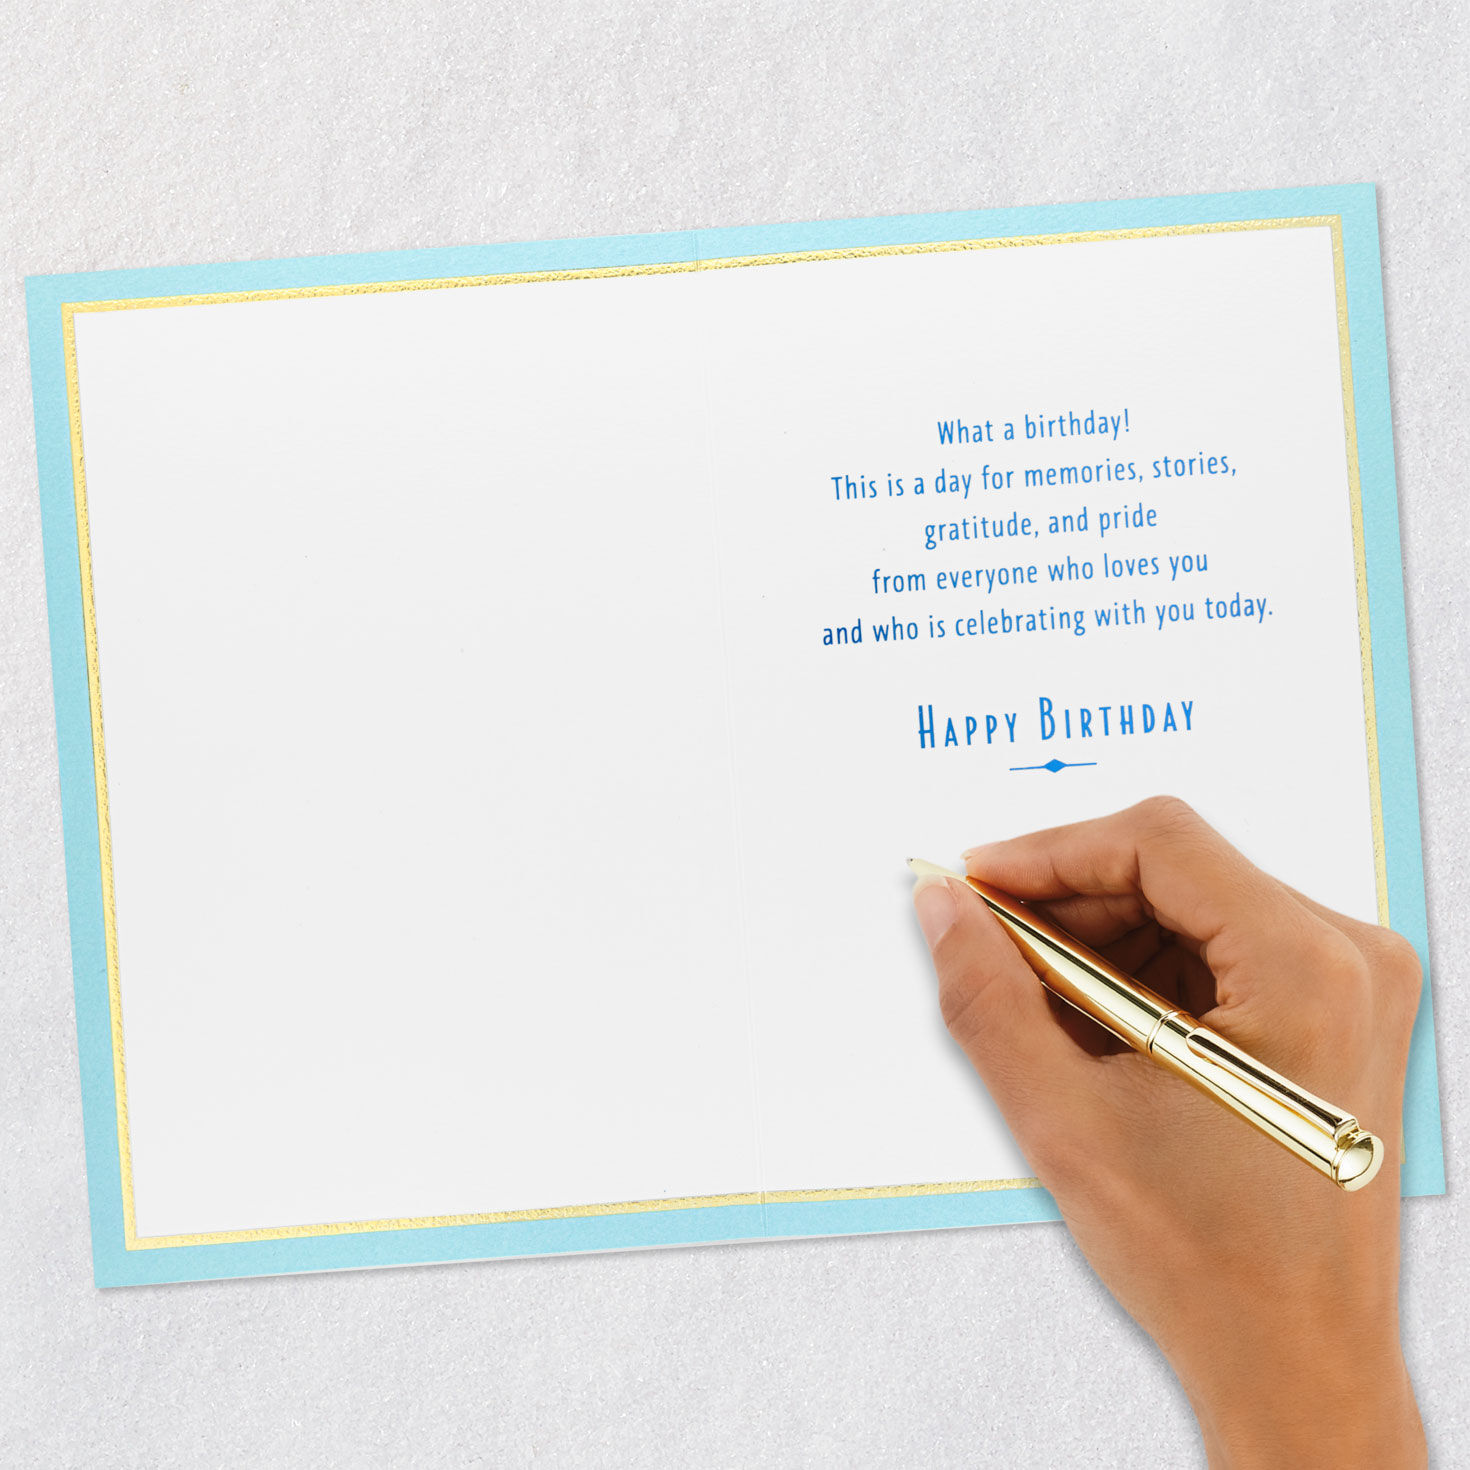 What a birthday!
This is a day for memories, stories,
gratitude, and pride
from everyone who loves you
and who is celebrating with you today.
Happy Birthday